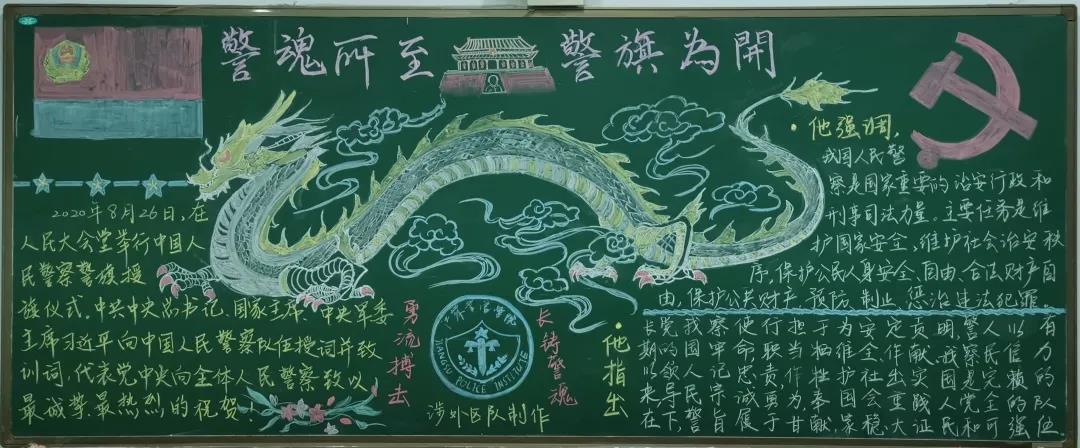 警魂所至 警旗為開
2020年8月26日,在
人民大会堂举行中国人
民警察警旗授
旗仪式。中共中央总书记、国家主席、中央军委
主席习近平向中国人民警察队伍授词并致
训词,代表党中央向全体人民警察致以
最诚挚、最热烈的祝贺!
勇流搏击
江苏警官学院
JIANGSU POLICE INSTITUTE
长铸警魂
涉外区队制作
·他强调,
我国人民警
察是国家重要的治安行政和
刑事司法力量。主要任务是维
护国家安全,维护社会治安秩
序,保护公民人身安全、自由、合法财产自
由,保护公共财产,预防、制止、惩治违法犯罪。
·他指出
长期以来在
党的领导下,
我国人民警
察牢记宗旨
使命忠诚履
行职责,勇于
担当作为甘
于牺牲奉献,
为维护国家
安全社会稳
定作出重大
贡献实践证
明,我国人民
警察是党和
人民完全可
以信赖的强
有力的队伍